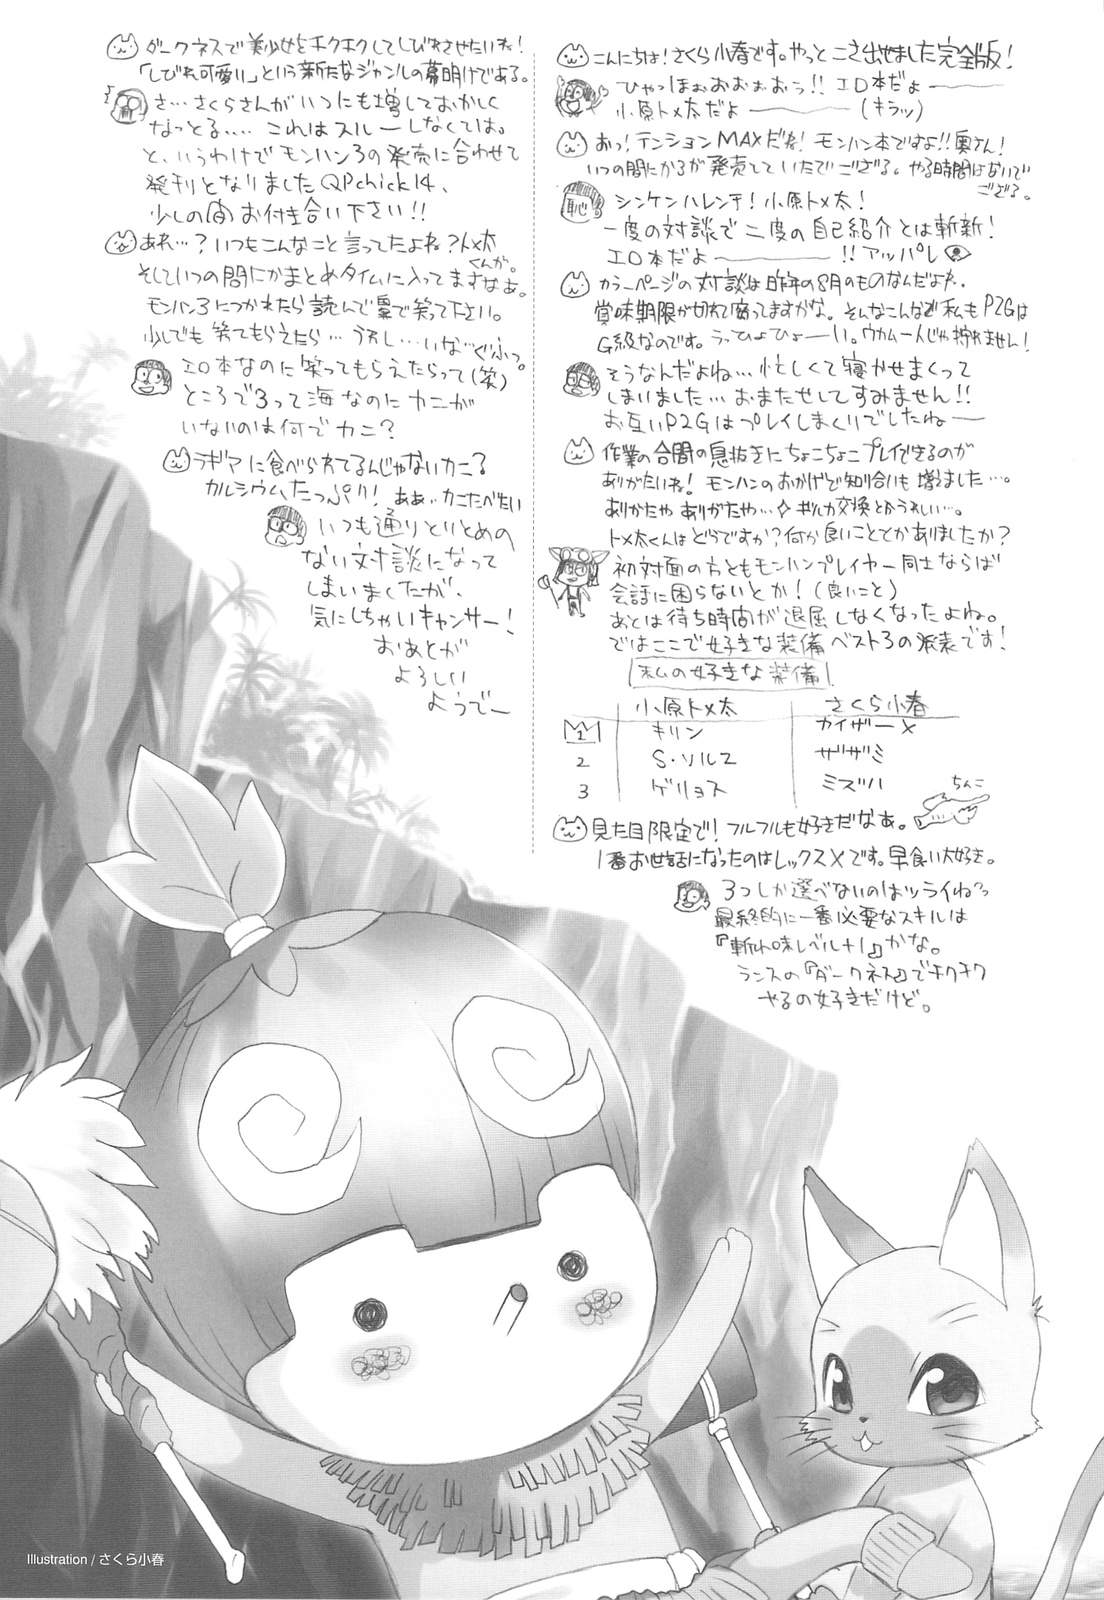 こんにちは!さくら小春です。やっとこさ出せました完全版!
ひゃっほぉおおぉおぅ!! エロ本だよ――――
小原トメ太だよ――――(キラッ)
おっ!テンションMAXだね! モンハン本ですよ!!奥さん!
いつの間にかるが発売していたでござる。やる時間はないで
ござる。
恥
シンケンハレンチ!小原トメ太!
一度の対談で二度の自己紹介とは斬新!
エロ本だよ――――!!アッパレ
カラーページの対談は昨年の8月のものなんだよね..
賞味期限が切れて腐ってますがな。そんなこんなで私もP2Gは
G級なのです。うっひょひょーい。ウカム一人じゃ狩れません!
そうなんだよね…忙しくて寝かせまくって
しまいました…おまたせしてすみません!!
お互いP2Gはプレイしまくりでしたね――
作業の合間の息抜きにちょこちょこプレイできるのが
ありがたいね! モンハンのおかげで知り合いも増えました…。
ありがたや ありがたや…◇ギルカ交換とかうれしい…。
トメ太くんはどうですか?何か良いこととかありましたか?
初対面の方ともモンハンプレイヤー同士ならば
会話に困らないとか!(良いこと)
あとは待ち時間が退屈しなくなったよね。
ではここで好きな装備ベスト3の発表です!
私の好きな装備
小原トメ太 さくら小春
1 キリン カイザーX
2 S・ソルZ ザザミ
3 ゲリョス ミズハ
ちんこ
見た目限定で!フルフルも好きだなぁ。
1番お世話になったのはレックスXです。早食い大好き。
3つしか選べないのはツライねっ
最終的に一番必要なスキルは
『斬れ味レベル+1』かな。
ランスの『ダークネス』でチクチク
やるの好きだけど。
ダークネスで美少女をチクチクしてしびれさせたいね!
「しびれ可愛い」という新たなジャンルの幕明けである。
さ…さくらさんがいつにも増しておかしく
なっとる…. これはスルーしなくては。
と、いうわけでモンハン3の発売に合わせて
発刊となりましたQPchick14、
少しの間お付き合い下さい!!
あれ…?いつもこんなこと言ってたよね?トメ太
くんが。
そしていつの間にかまとめタイムに入ってますなぁ。
モンハン3につかれたら読んで鼻で笑って下さい。
少しでも笑てもらえたら…うれし…いな…ぐふっ。
エロ本なのに笑ってもらえたらって(笑)
ところで3って海なのにカニが
いないのは何でカニ?
ラギアに食べられてるんじゃないカニ?
カルシウムたっぷり! ああ..カニたべたい
いつも通りとりとめの
ない対談になって
しまいましたが、
気にしちゃいキャンサー!
おあとが
よろしい
ようでー
Illustration / さくら小春